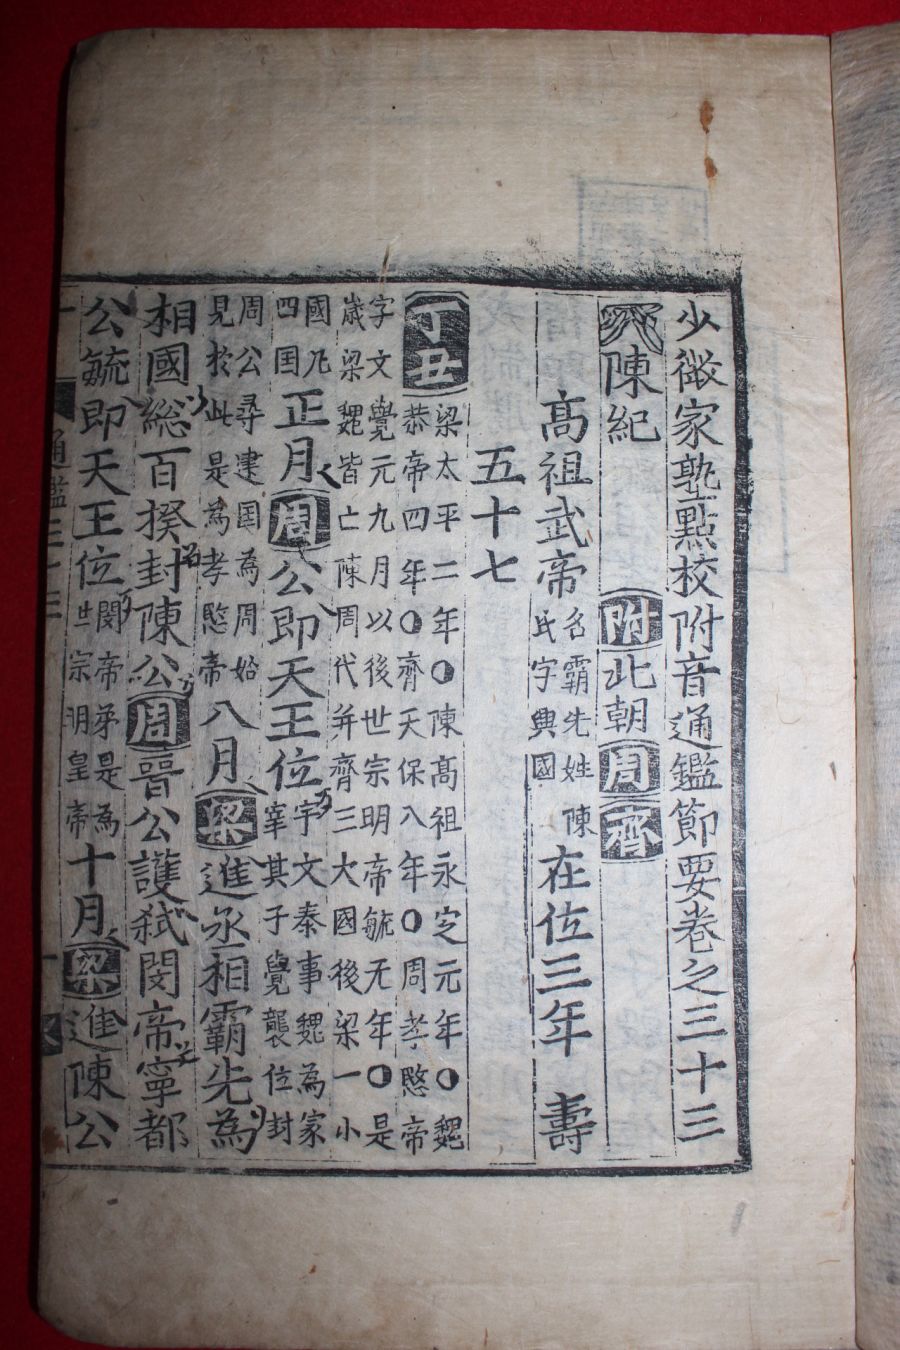 少微家塾點校附音通鑑節要卷之三十三
陳紀 附北朝周齊
高祖武帝 名霸先姓陳氏字興國 在位三年 壽
五十七
丁丑 梁太平二年○陳高祖永定元年○魏恭帝四年○齊天保八年○周孝愍帝
字文覺元九月以後世宗明帝毓元年○是歲梁魏皆亡陳周代并齊三大國後梁一小
國凡四国 正月周公即天王位 宇文泰事魏為冢宰其子覺襲位封
周公尋建国為周始見於此是為孝愍帝 八月梁進丞相霸先為
相國総百揆封陳公周晉公護弑閔帝寧都
公毓即天王位 閔帝㐧是為世宗明皇帝 十月梁進陳公
通鑑三十三 一